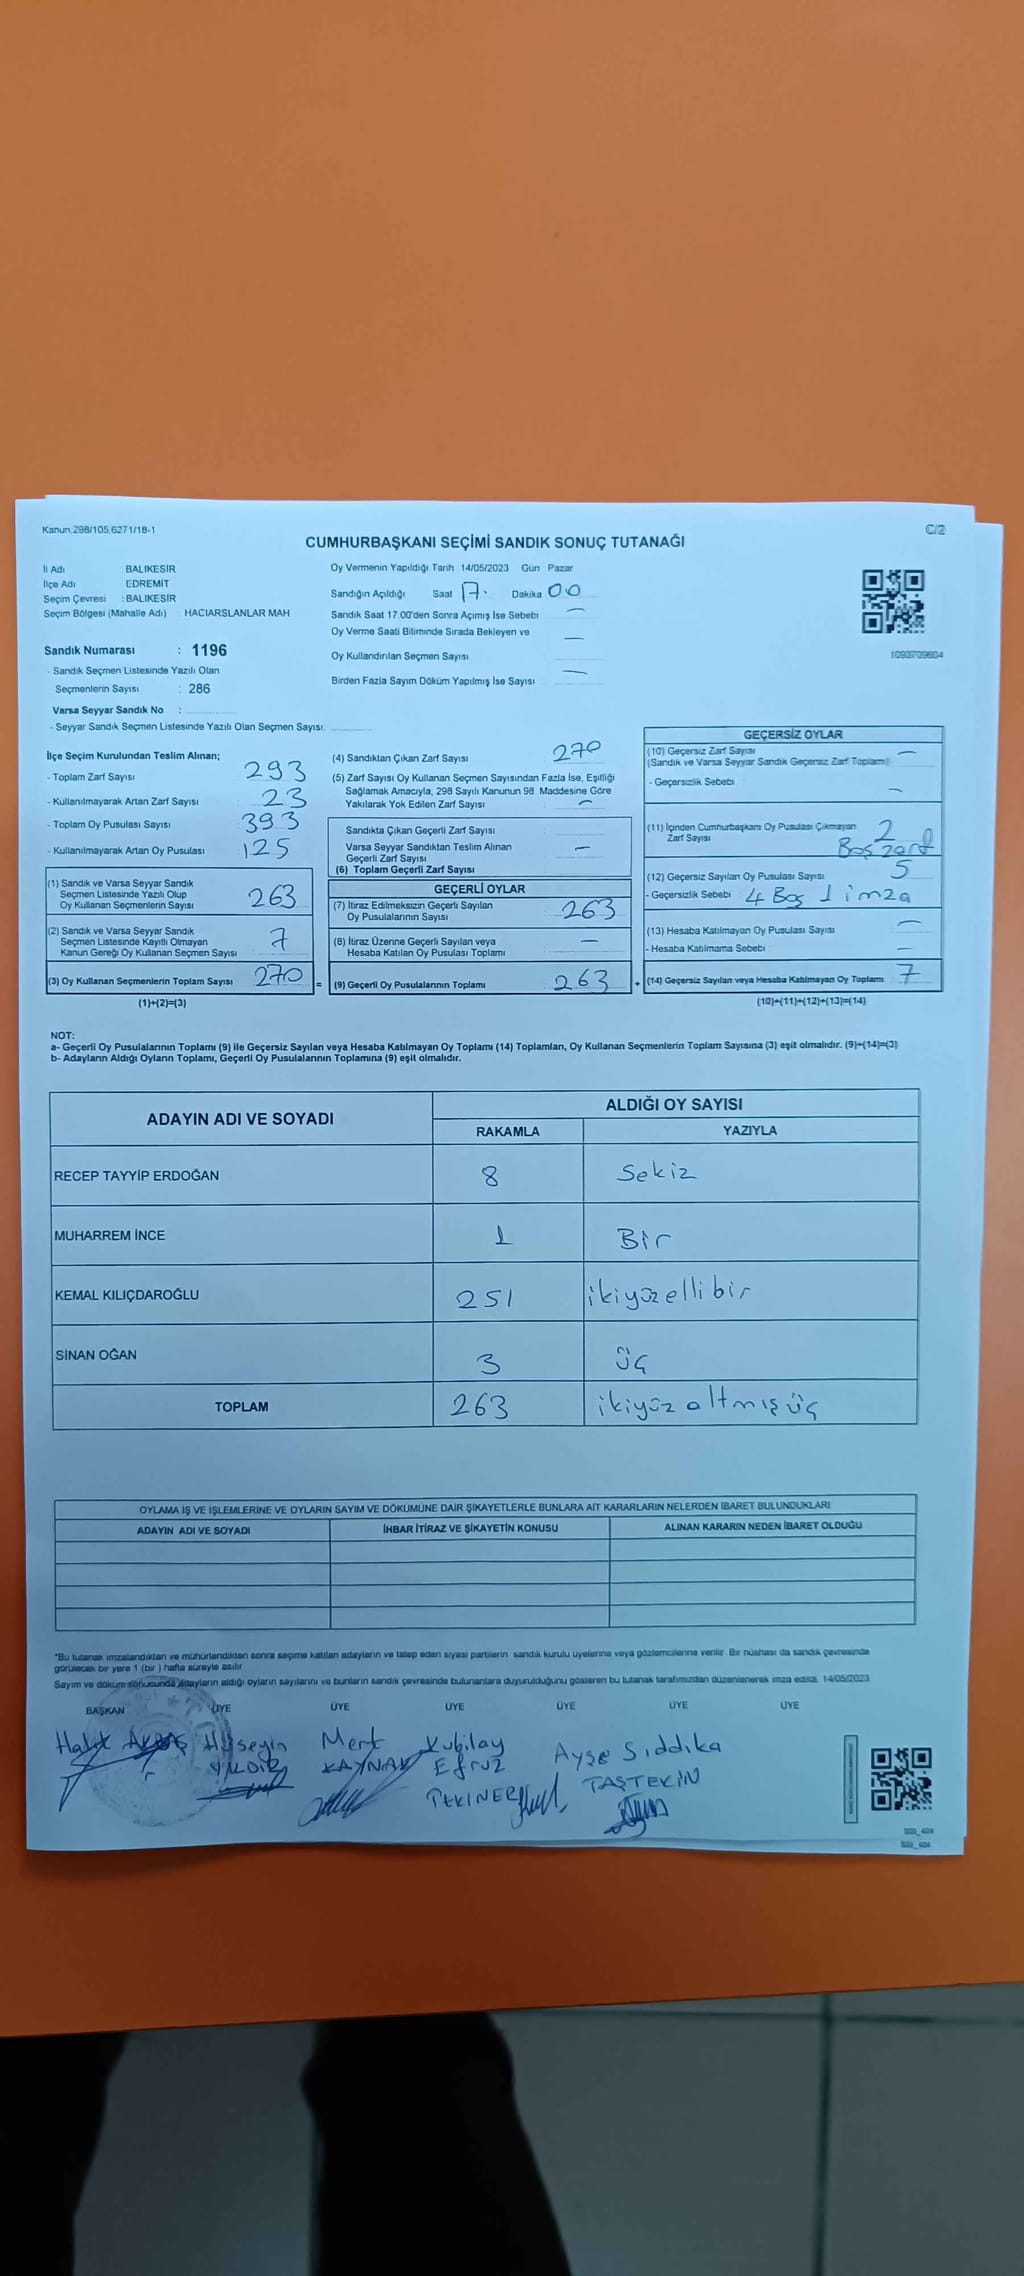 Kanun 298/105,6271/18-1
C/2
CUMHURBAŞKANI SEÇİMİ SANDIK SONUÇ TUTANAĞI
İl Adı : BALIKESİR
İlçe Adı : EDREMİT
Seçim Çevresi : BALIKESİR
Seçim Bölgesi (Mahalle Adı) : HACIARSLANLAR MAH.
Oy Vermenin Yapıldığı Tarih 14/05/2023 Gün Pazar
Sandığın Açıldığı Saat 17. Dakika 00
Sandık Saat 17.00'den Sonra Açımış İse Sebebi —
Oy Verme Saati Bitiminde Sırada Bekleyen ve —
Oy Kullandırılan Seçmen Sayısı
Birden Fazla Sayım Döküm Yapılmış İse Sayısı —
1093709604
Sandık Numarası : 1196
- Sandık Seçmen Listesinde Yazılı Olan
Seçmenlerin Sayısı : 286
Varsa Seyyar Sandık No :
- Seyyar Sandık Seçmen Listesinde Yazılı Olan Seçmen Sayısı:
İlçe Seçim Kurulundan Teslim Alınan;
- Toplam Zarf Sayısı 293
- Kullanılmayarak Artan Zarf Sayısı 23
- Toplam Oy Pusulası Sayısı 393
- Kullanılmayarak Artan Oy Pusulası : 125
(1) Sandık ve Varsa Seyyar Sandık
Seçmen Listesinde Yazılı Olup
Oy Kullanan Seçmenlerin Sayısı 263
(2) Sandık ve Varsa Seyyar Sandık
Seçmen Listesinde Kayıtlı Olmayan
Kanun Gereği Oy Kullanan Seçmen Sayısı 7
(3) Oy Kullanan Seçmenlerin Toplam Sayısı 270 =
(1)+(2)=(3)
(4) Sandıktan Çıkan Zarf Sayısı 270
(5) Zarf Sayısı Oy Kullanan Seçmen Sayısından Fazla İse, Eşitliği
Sağlamak Amacıyla, 298 Sayılı Kanunun 98 Maddesine Göre
Yakılarak Yok Edilen Zarf Sayısı —
Sandıkta Çıkan Geçerli Zarf Sayısı
Varsa Seyyar Sandıktan Teslim Alınan
Geçerli Zarf Sayısı —
(6) Toplam Geçerli Zarf Sayısı
GEÇERLİ OYLAR
(7) İtiraz Edilmeksizin Geçerli Sayılan
Oy Pusulalarının Sayısı 263
(8) İtiraz Üzerine Geçerli Sayılan veya
Hesaba Katılan Oy Pusulası Toplamı —
(9) Geçerli Oy Pusulalarının Toplamı 263 +
GEÇERSİZ OYLAR
(10) Geçersiz Zarf Sayısı —
(Sandık ve Varsa Seyyar Sandık Geçersiz Zarf Toplamı)
- Geçersizlik Sebebi —
(11) İçinden Cumhurbaşkanı Oy Pusulası Çıkmayan 2
Zarf Sayısı Boş zarf
(12) Geçersiz Sayılan Oy Pusulası Sayısı 5
- Geçersizlik Sebebi 4 Boş 1 imza
(13) Hesaba Katılmayan Oy Pusulası Sayısı —
- Hesaba Katılmama Sebebi —
(14) Geçersiz Sayılan veya Hesaba Katılmayan Oy Toplamı 7
(10)+(11)+(12)+(13)=(14)
NOT:
a- Geçerli Oy Pusulalarının Toplamı (9) ile Geçersiz Sayılan veya Hesaba Katılmayan Oy Toplamı (14) Toplamları, Oy Kullanan Seçmenlerin Toplam Sayısına (3) eşit olmalıdır. (9)+(14)=(3)
b- Adayların Aldığı Oyların Toplamı, Geçerli Oy Pusulalarının Toplamına (9) eşit olmalıdır.
ADAYIN ADI VE SOYADI
ALDIĞI OY SAYISI
RAKAMLA YAZIYLA
RECEP TAYYİP ERDOĞAN 8 Sekiz
MUHARREM İNCE 1 Bir
KEMAL KILIÇDAROĞLU 251 ikiyüzellibir
SİNAN OĞAN 3 üç
TOPLAM 263 ikiyüz altmış üç
OYLAMA İŞ VE İŞLEMLERİNE VE OYLARIN SAYIM VE DÖKÜMÜNE DAİR ŞİKAYETLERLE BUNLARA AİT KARARLARIN NELERDEN İBARET BULUNDUKLARI
ADAYIN ADI VE SOYADI İHBAR İTİRAZ VE ŞİKAYETİN KONUSU ALINAN KARARIN NEDEN İBARET OLDUĞU
*Bu tutanak imzalandıktan ve mühürlendikten sonra seçime katılan adayların ve talep eden siyasi partilerin sandık kurulu üyelerine veya gözlemcilerine verilir. Bir nüshası da sandık çevresinde
görülecek bir yere 1 (bir ) hafta süreyle asılır.
Sayım ve döküm sonucunda adayların aldığı oyların sayılarını ve bunların sandık çevresinde bulunanlara duyurulduğunu gösteren bu tutanak tarafımızdan düzenlenerek imza edildi. 14/05/2023
BAŞKAN ÜYE ÜYE ÜYE ÜYE ÜYE ÜYE
Hüseyin Mert Kubilay Ayşe Sıddıka
YILDIZ KAYNAK Efruz TAŞTEKİN
PEKİNER